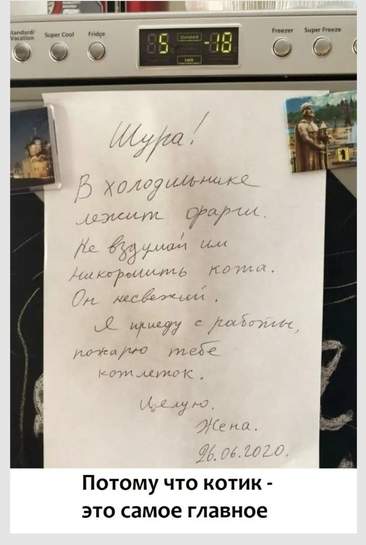 Standard/
Vacation
Super Cool
Fridge
Freezer
Super Freeze
5
-18
Шура!
В холодильнике
лежит фарш.
Не вздумай им
накормить кота.
Он несвежий.
Я приеду с работы,
пожарю тебе
котлеток.
Целую.
Жена.
26.06.2020.
Потому что котик -
это самое главное